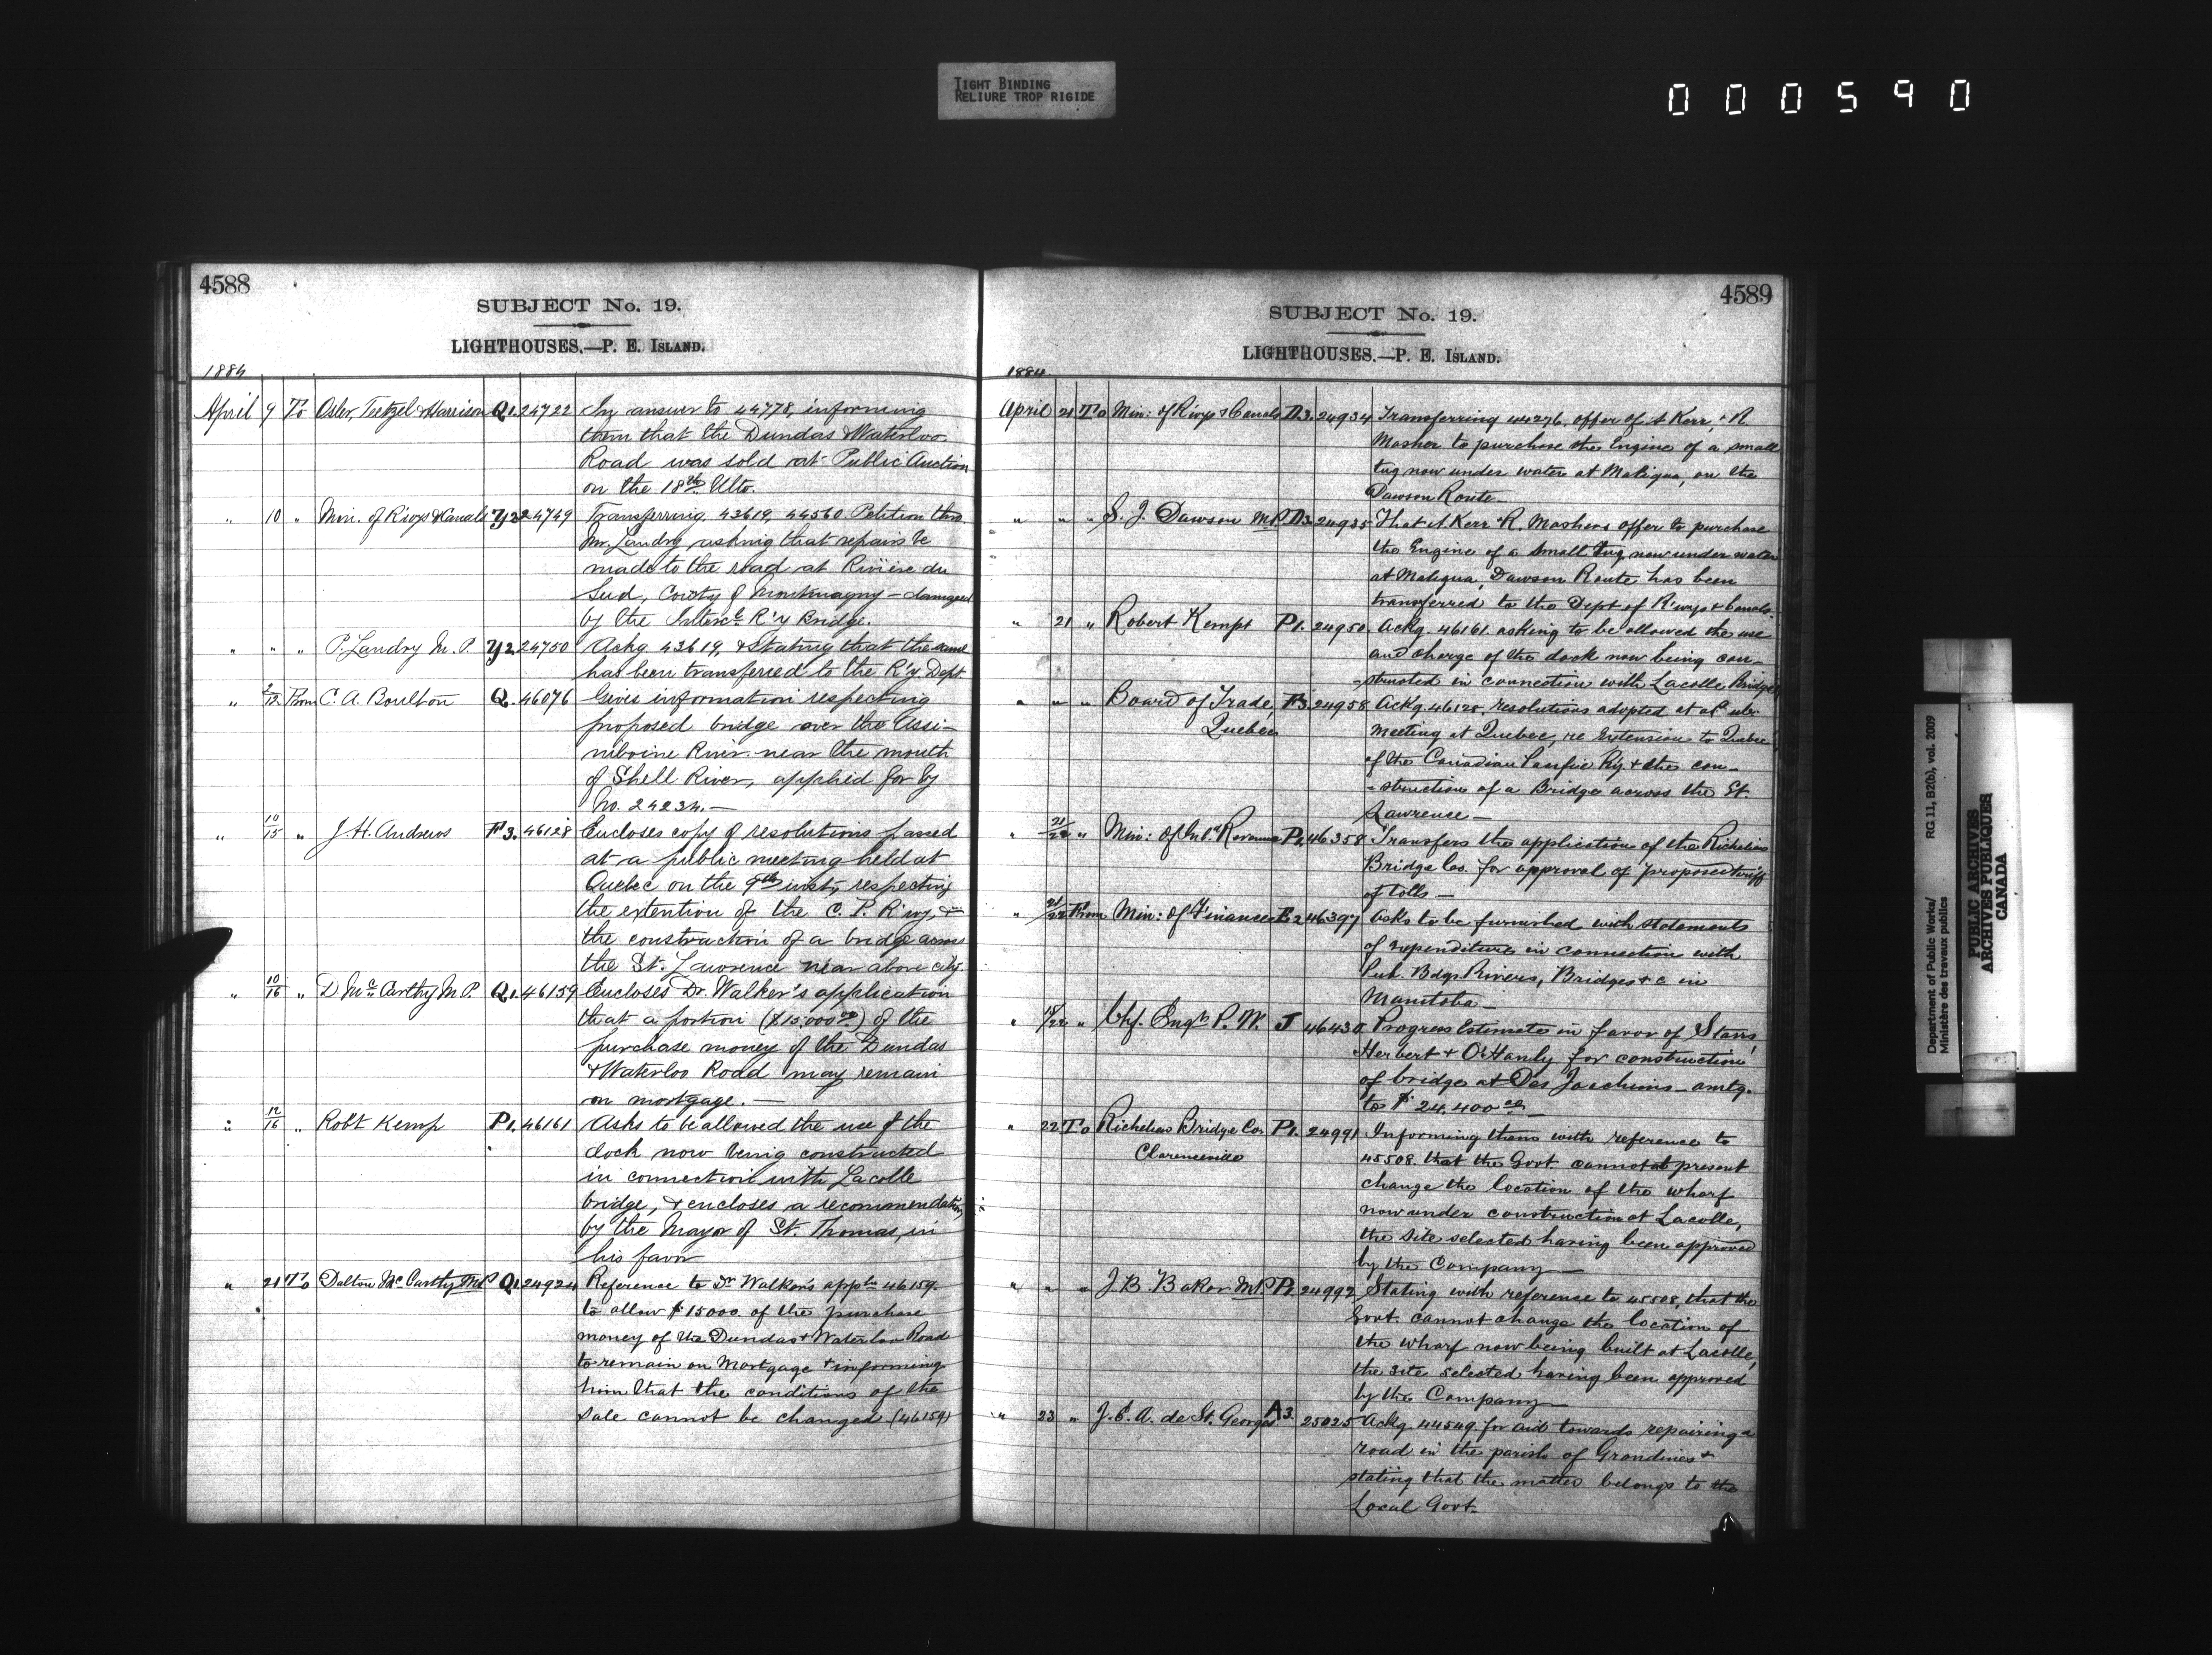 TIGHT BINDING
RELIURE TROP RIGIDE
000590
4588
SUBJECT No. 19.
LIGHTHOUSES.—P. E. ISLAND.
1884
April 9 To Osler, Teetzel & Harrison Q1. 24722 In answer to 44778, informing
them that the Dundas & Waterloo
Road was sold at Public Auction
on the 18th Ulto.
" 10 " Min. of R'ways & Canals Y2 24749 Transferring 43619, 44560 Petition thro
Mr. Landry asking that repairs be
made to the road at Rivière du
Sud, County of Montmagny - damaged
by the Interc. R'y Bridge.
" " " P. Landry M.P. Y2. 24750 Ackg 43619, & Stating that the same
has been transferred to the R'y Dept
" 9/12 From C. A. Boulton Q. 46076 Gives information respecting
proposed bridge over the Assi-
niboine River near the mouth
of Shell River, applied for by
No. 24234.—
" 10/15 " J. H. Andrews F3. 46128 Encloses copy of resolutions passed
at a public meeting held at
Quebec on the 9th inst, respecting
the extention of the C. P. R'wy, &
the construction of a bridge across
the St. Lawrence near above city.
" 10/16 " D. McCarthy M.P. Q1. 46159 Encloses Dr. Walker's application
that a portion ($15,000.00) of the
purchase money of the Dundas
& Waterloo Road may remain
on mortgage.—
" 12/16 " Robt Kemp P1. 46161 Asks to be allowed the use of the
dock now being constructed
in connection with Lacolle
bridge, & encloses a recommendation
by the Mayor of St. Thomas, in
his favor
" 21 To Dalton McCarthy M.P. Q1. 24924 Reference to Dr Walker's appn 46159.
to allow $15000. of the purchase
money of the Dundas & Waterloo Road
to remain on Mortgage & informing
him that the conditions of the
sale cannot be changed (46159)
4589
SUBJECT No. 19.
LIGHTHOUSES.—P. E. ISLAND.
1884.
April 21 To Min: of R'ways & Canals D3. 24934 Transferring 44276. offer of A Kerr, & R.
Mosher to purchase the Engine of a small
tug now under water at Maligua, on the
Dawson Route—
" " " S. J. Dawson M.P. D3. 24935 That A. Kerr & R. Moshers offer to purchase
the Engine of a small tug now under water
at Maligua, Dawson Route, has been
transferred to the Dept of R'ways & Canals.
" 21 " Robert Kempt P1. 24950. Ackg. 46161. asking to be allowed the use
and charge of the dock now being con-
-structed in connection with Lacolle Bridge
" " " Board of Trade, F3. 24958 Ackg. 46128. resolutions adopted at a Public
Quebec Meeting at Quebec, re Extension to Quebec
of the Canadian Pacific Ry. & the con-
-struction of a Bridge across the St.
Lawrence—
" 21/22 " Min: of Inld Revenue P1. 46358 Transfers the application of the Richelieu
Bridge Co. for approval of proposed tariff
of tolls—
" 21/22 From Min: of Finance E2 46397 Asks to be furnished with statements
of expenditure in connection with
Pub. Bdgs Rivers, Bridges &c in
Manitoba—
" 18/22 " Chf. Engr P. W. J 46430 Progress Estimate in favor of Starrs,
Herbert & O'Hanly for construction
of bridge at Des Joachims - amtg.
to $24,400.00—
" 22 To Richelieu Bridge Co. P1. 24991 Informing them with reference to
Clarenceville 45508. that the Govt cannot at present
change the location of the wharf
now under construction at Lacolle,
the site selected having been approved
by the Company—
" " " J. B. Baker M.P. P1. 24992 Stating with reference to 45508, that the
Govt. cannot change the location of
the wharf now being built at Lacolle,
the site selected having been approved
by the Company—
" 23 " J. E. A. de St. Georges A3. 25025 Ackg. 44549 for aid towards repairing a
road in the parish of Grondines &
stating that the matter belongs to the
Local Govt.
Department of Public Works/ RG 11, B2(b), vol. 2009
Ministère des travaux publics
PUBLIC ARCHIVES
ARCHIVES PUBLIQUES
CANADA